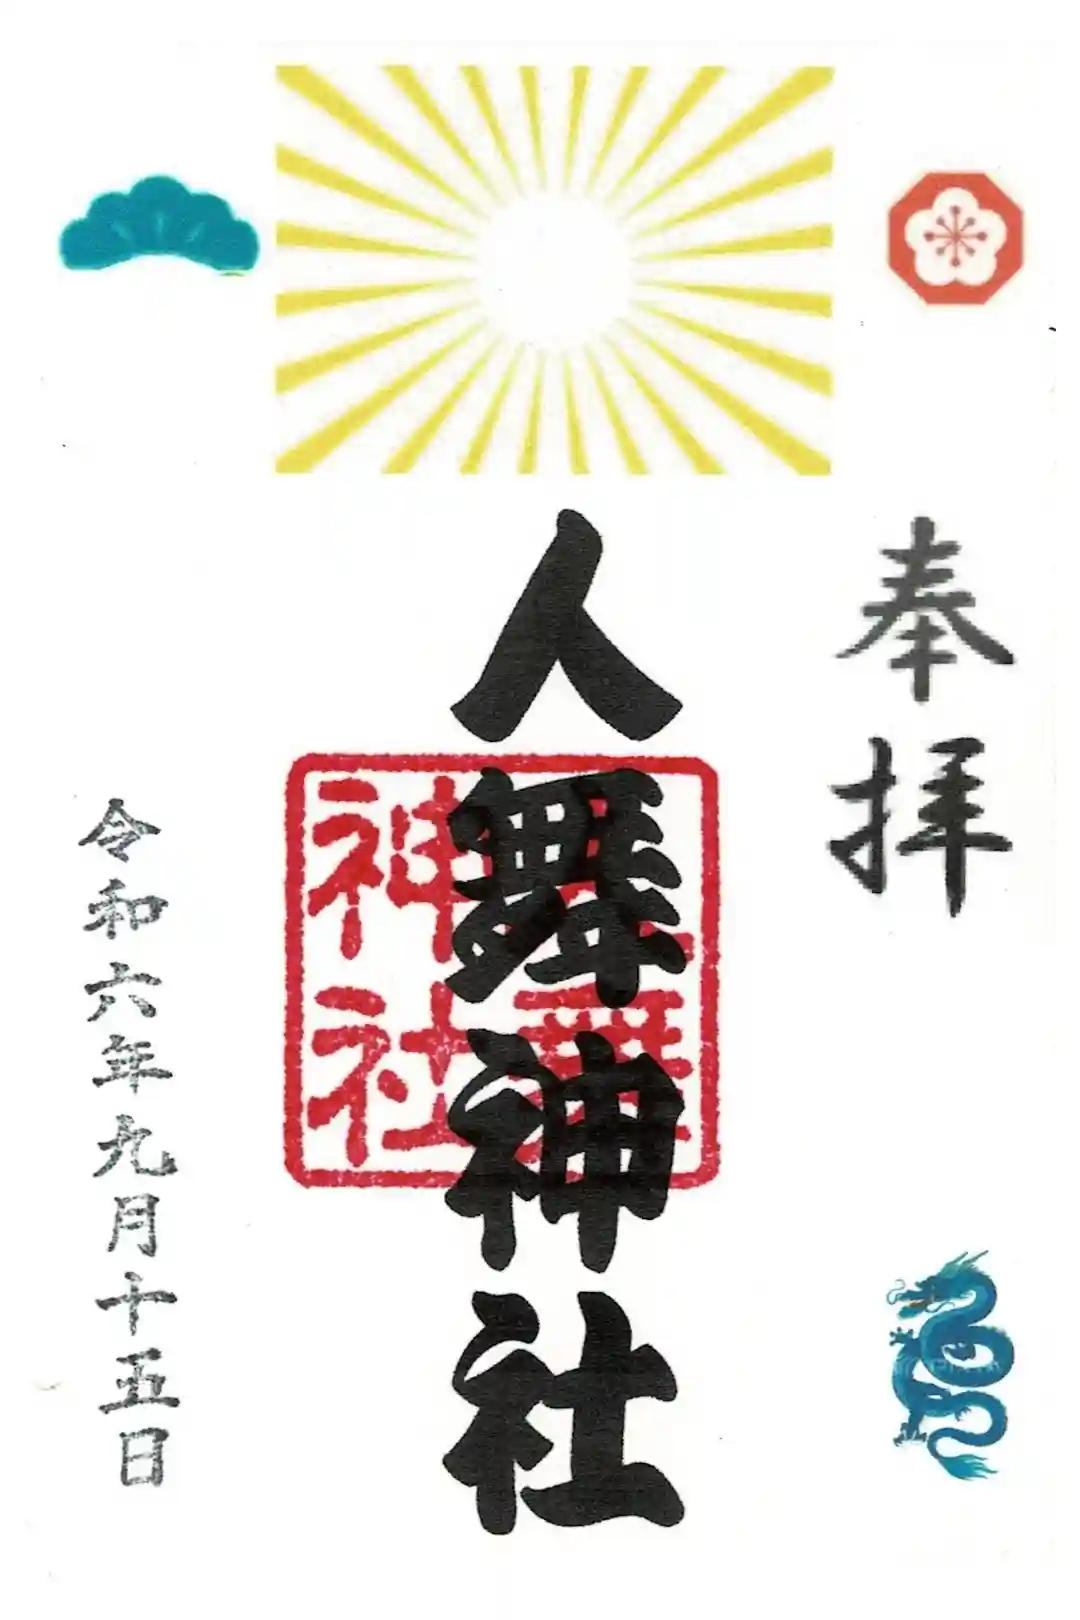 奉拝
人舞神社
神社
令和六年九月十五日